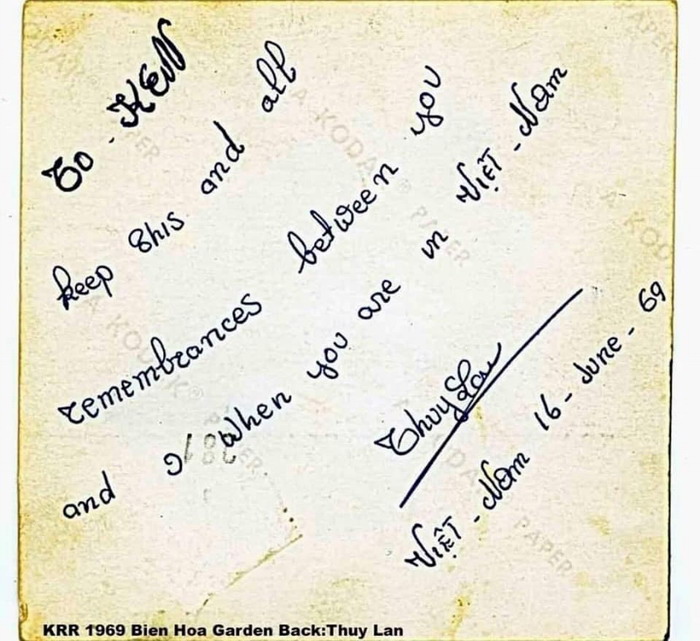 To - KEN
keep this and all
remembrances between you
and I when you are in Việt - Nam
Thuy Lan
Việt - Nam 16 - June - 69
A KODAK® PAPER
KRR 1969 Bien Hoa Garden Back:Thuy Lan